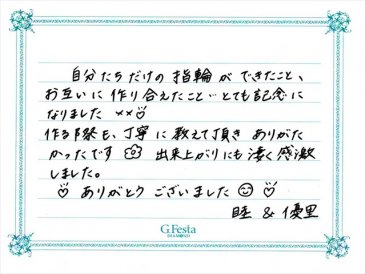 自分たちだけの指輪ができたこと、
お互いに作り合えたこと…とても記念に
なりました ××♡
作る際も、丁寧に教えて頂き ありがた
かったです 出来上がりにも凄く感激
しました。
♡ ありがとうございました ☺ ♡
睦 & 優里
G.Festa
DIAMOND